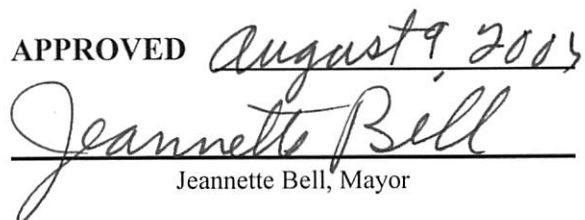 APPROVED August 9
Jeannette Bell
Jeannette Bell, Mayor